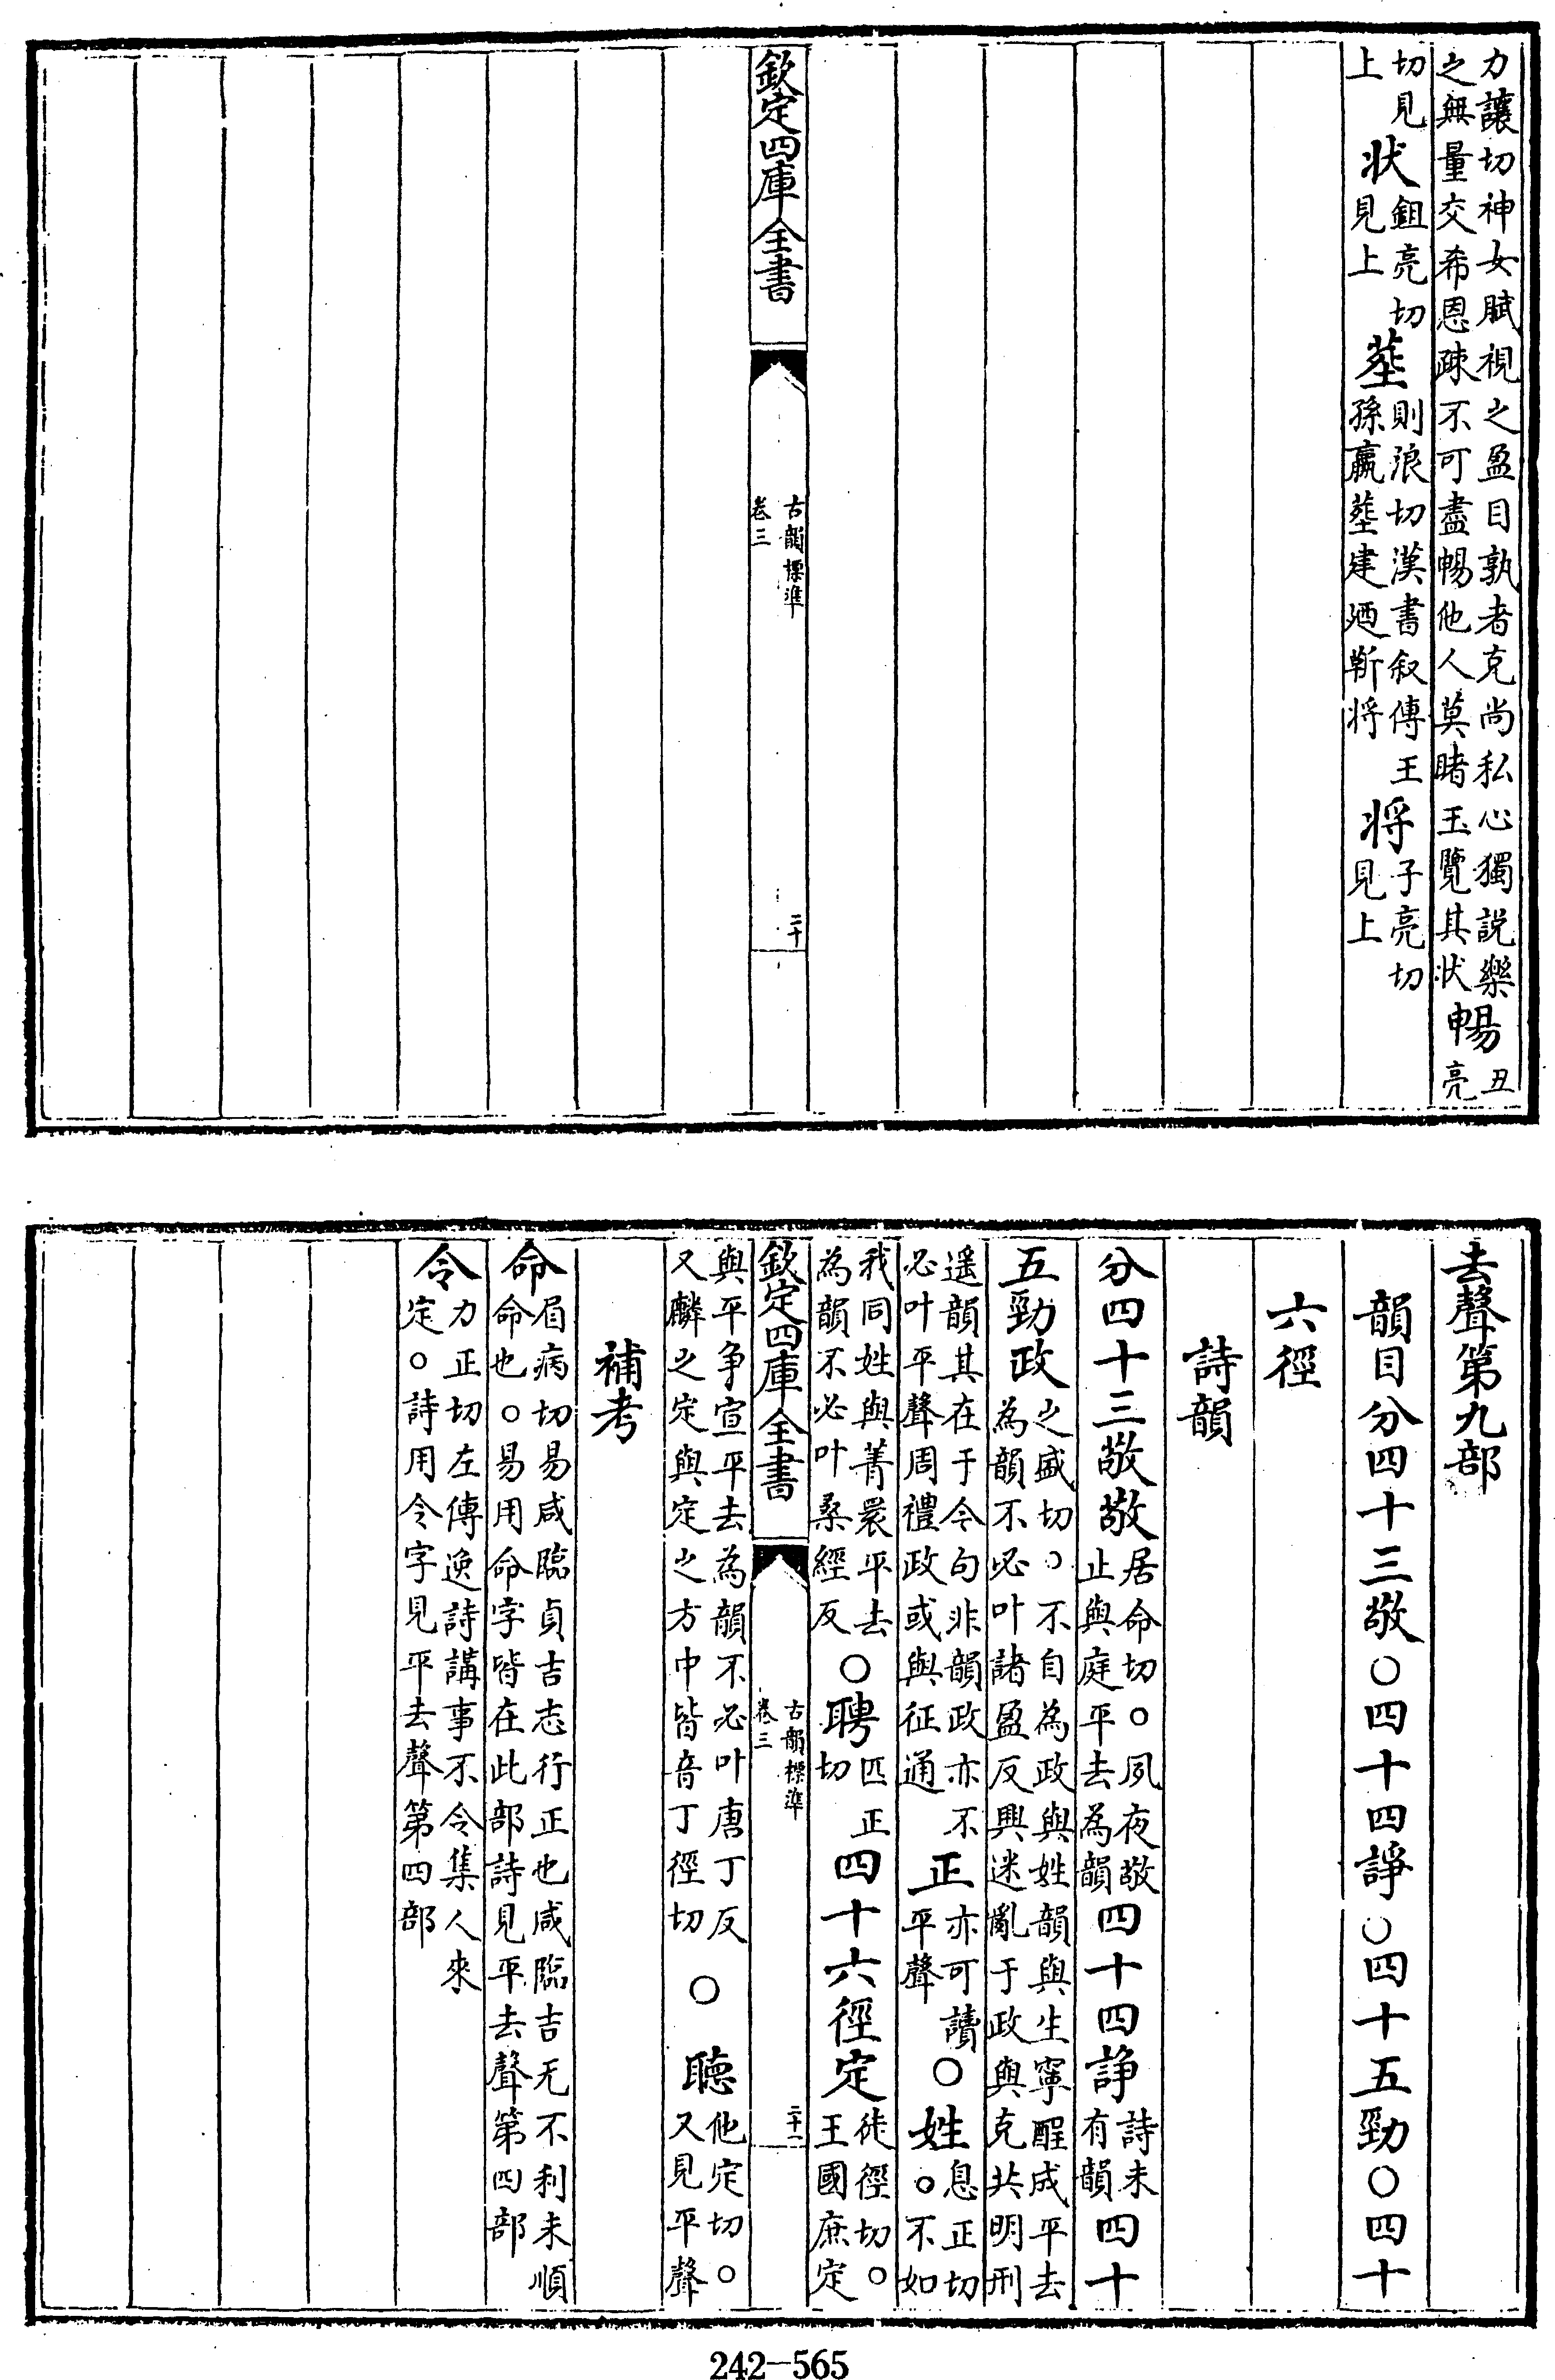 力讓切神女賦視之盈目孰者克尚私心獨説樂
之無量交希恩疎不可盡暢他人莫睹玉覽其状暢丑
亮
切見
上状鉏亮切
見上塟則浪切漢書叙傳王
孫臝塟建廼斬将将子亮切
見上
欽定四庫全書
古韻標準
卷三
二十
去聲第九部
韻目分四十三敬○四十四諍○四十五勁○四十
六徑
詩韻
分四十三敬敬居命切○夙夜敬
止與庭平去為韻四十四諍詩未
有韻四十
五勁政之盛切○不自為政與姓韻與生寧酲成平去
為韻不必叶諸盈反興迷亂于政與克共明刑
遥韻其在于今句非韻政亦不
必叶平聲周禮政或與征通正亦可讀
平聲○姓息正切
○不如
我同姓與菁睘平去
為韻不必叶桑經反○聘匹正
切四十六徑定徒徑切○
王國庶定
欽定四庫全書
古韻標準
卷三
二十一
與平争宣平去為韻不必叶唐丁反
又麟之定與定之方中皆音丁徑切○聽他定切○
又見平聲
補考
命眉病切易咸臨貞吉志行正也咸臨吉无不利未順
命也○易用命字皆在此部詩見平去聲第四部
令力正切左傳逸詩講事不令集人來
定○詩用令字見平去聲第四部
242-565